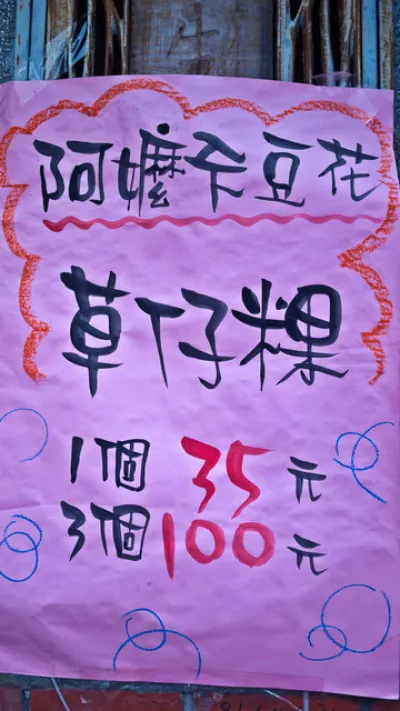 阿嬤ㄟ豆花
草仔粿
1個 35元
3個 100元